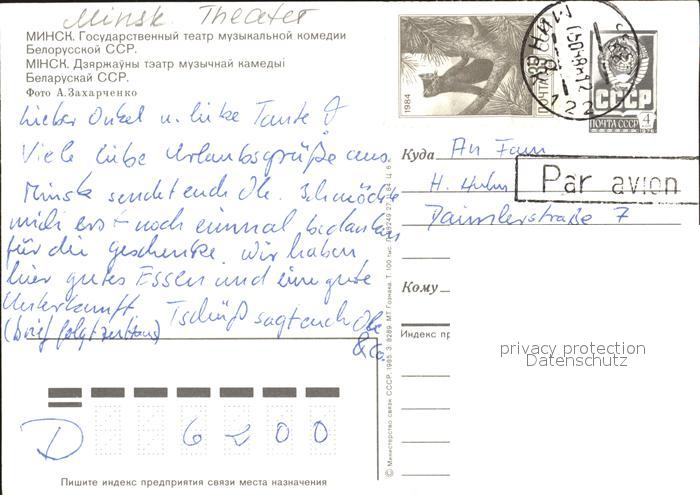 Minsk Theater
МИНСК. Государственный театр музыкальной комедии
Белорусской ССР.
МІНСК. Дзяржаўны тэатр музычнай камедыі
Беларускай ССР.
Фото А. Захарченко
Lieber Onkel u. liebe Tante
Viele liebe Urlaubsgrüße aus
Minsk sendet euch Ole. Ich möchte
mich erst noch einmal bedanken
für die Geschenke. Wir haben
hier gutes Essen und eine gute
Unterkunft. Tschüß sagt euch Ole
& Co.
(Brief folgt)
1984
ПОЧТА СССР
122
СССР
ПОЧТА СССР
4
Куда
An Fam
H. Huhn
Par avion
Daimlerstraße 7
Кому
Индекс пр
privacy protection
Datenschutz
D 6200
Пишите индекс предприятия связи места назначения
© Министерство связи СССР. 1985. З. 8289. МТ Гознака. Т. 100 тыс.